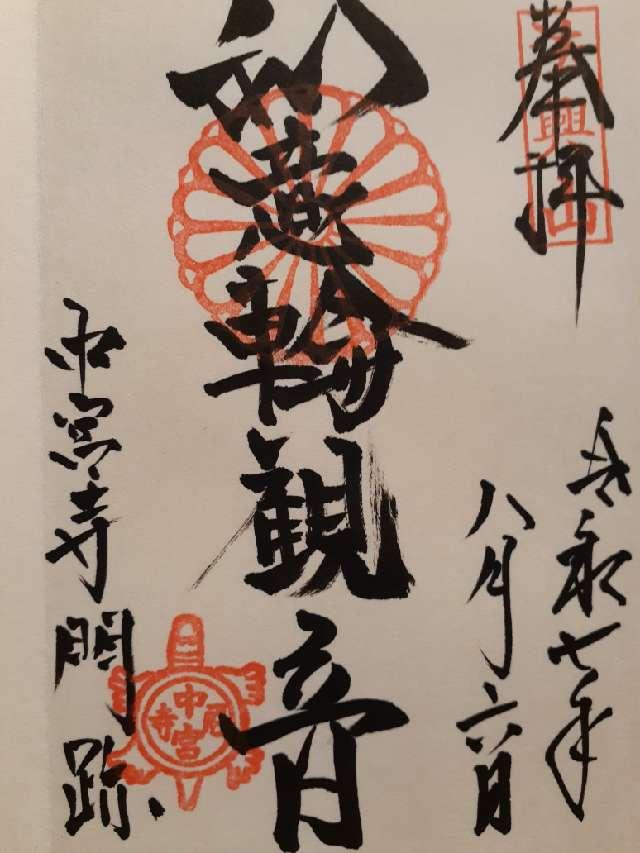 奉拝
法興山
令和七年
八月六日
如意輪観音
中宮寺門跡
中宮尼寺